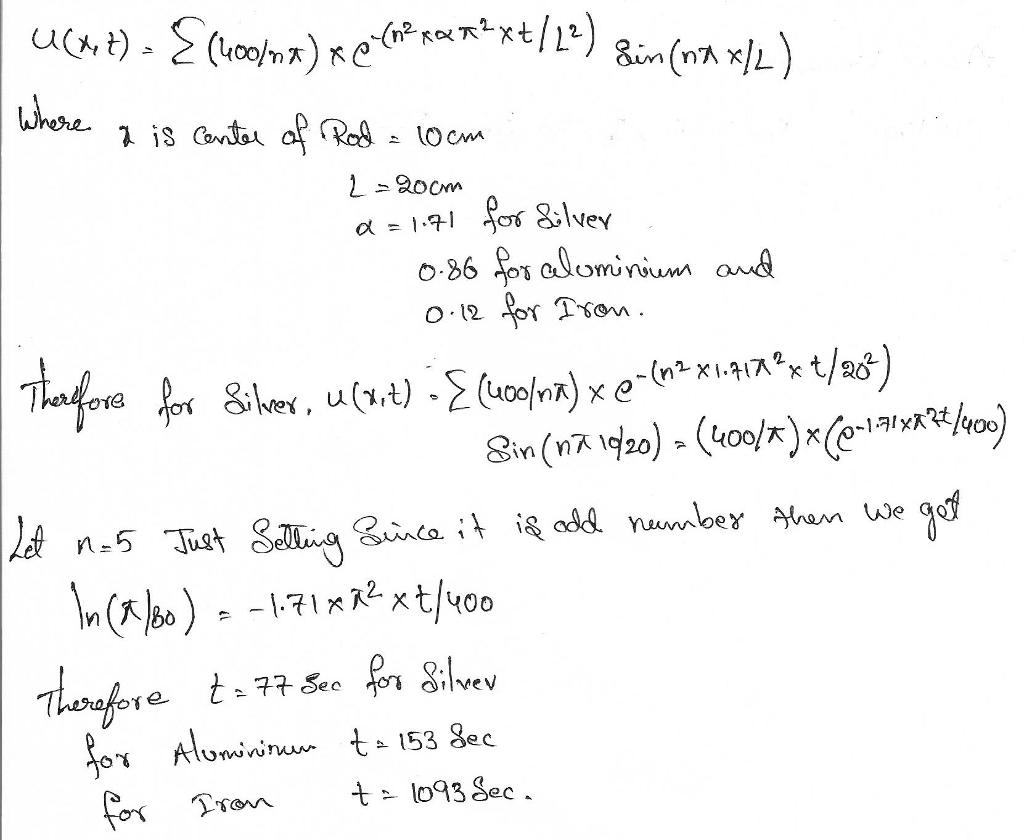 u(x,t) = Σ(400/nπ) × e^-(n² × α π² × t / L²) Sin(nπ x/L)
Where x is Center of Rod = 10 cm
L = 20cm
α = 1.71 for Silver
0.86 for aluminium and
0.12 for Iron.
Therefore for Silver, u(x,t) = Σ(400/nπ) × e^-(n² × 1.71π² × t/20²)
Sin(nπ 10/20) = (400/π) × (e^-1.71×π²t/400)
Let n=5 Just Setting Since it is odd number then we get
ln(π/80) = -1.71 × π² × t/400
Therefore t = 77 Sec for Silver
for Alumininum t = 153 Sec
for Iron t = 1093 Sec.